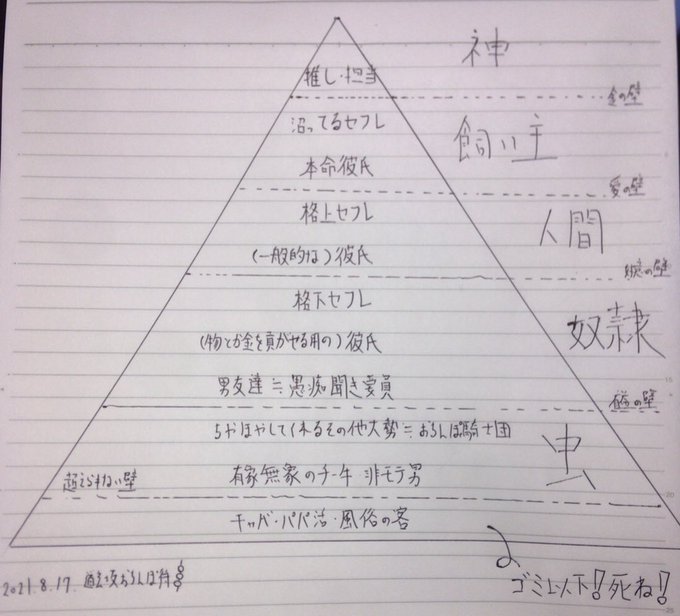 神
推し・担当
金の壁
沼ってるセフレ
飼い主
本命彼氏
愛の壁
格上セフレ
人間
(一般的な)彼氏
の壁
格下セフレ
奴隷
(物とか金を貢がせる用の)彼氏
男友達≒愚痴聞き要員
の壁
ちやほやしてくれるその他大勢≒おちんぽ騎士団
虫
超えられない壁
有象無象のチー牛 非モテ男
キャバ・パパ活・風俗の客
2021.8.17.
ゴミ以下!死ね!